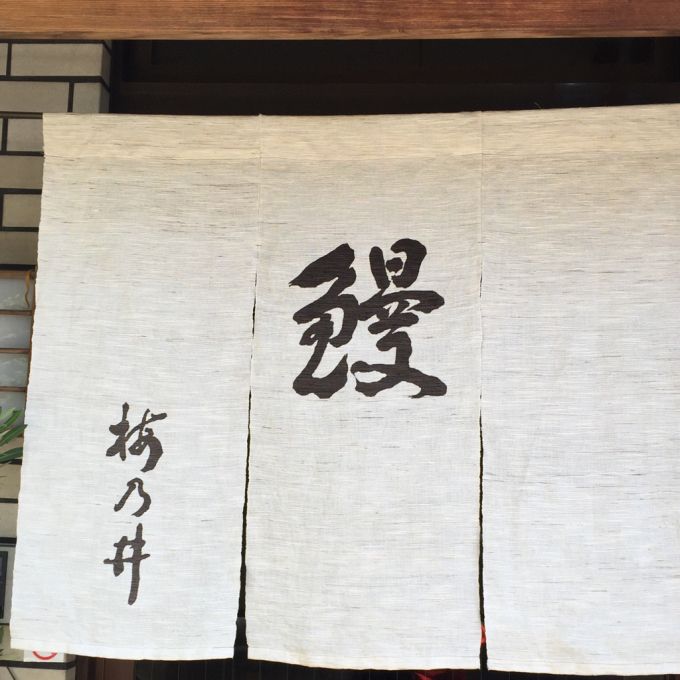 鰻
梅乃井